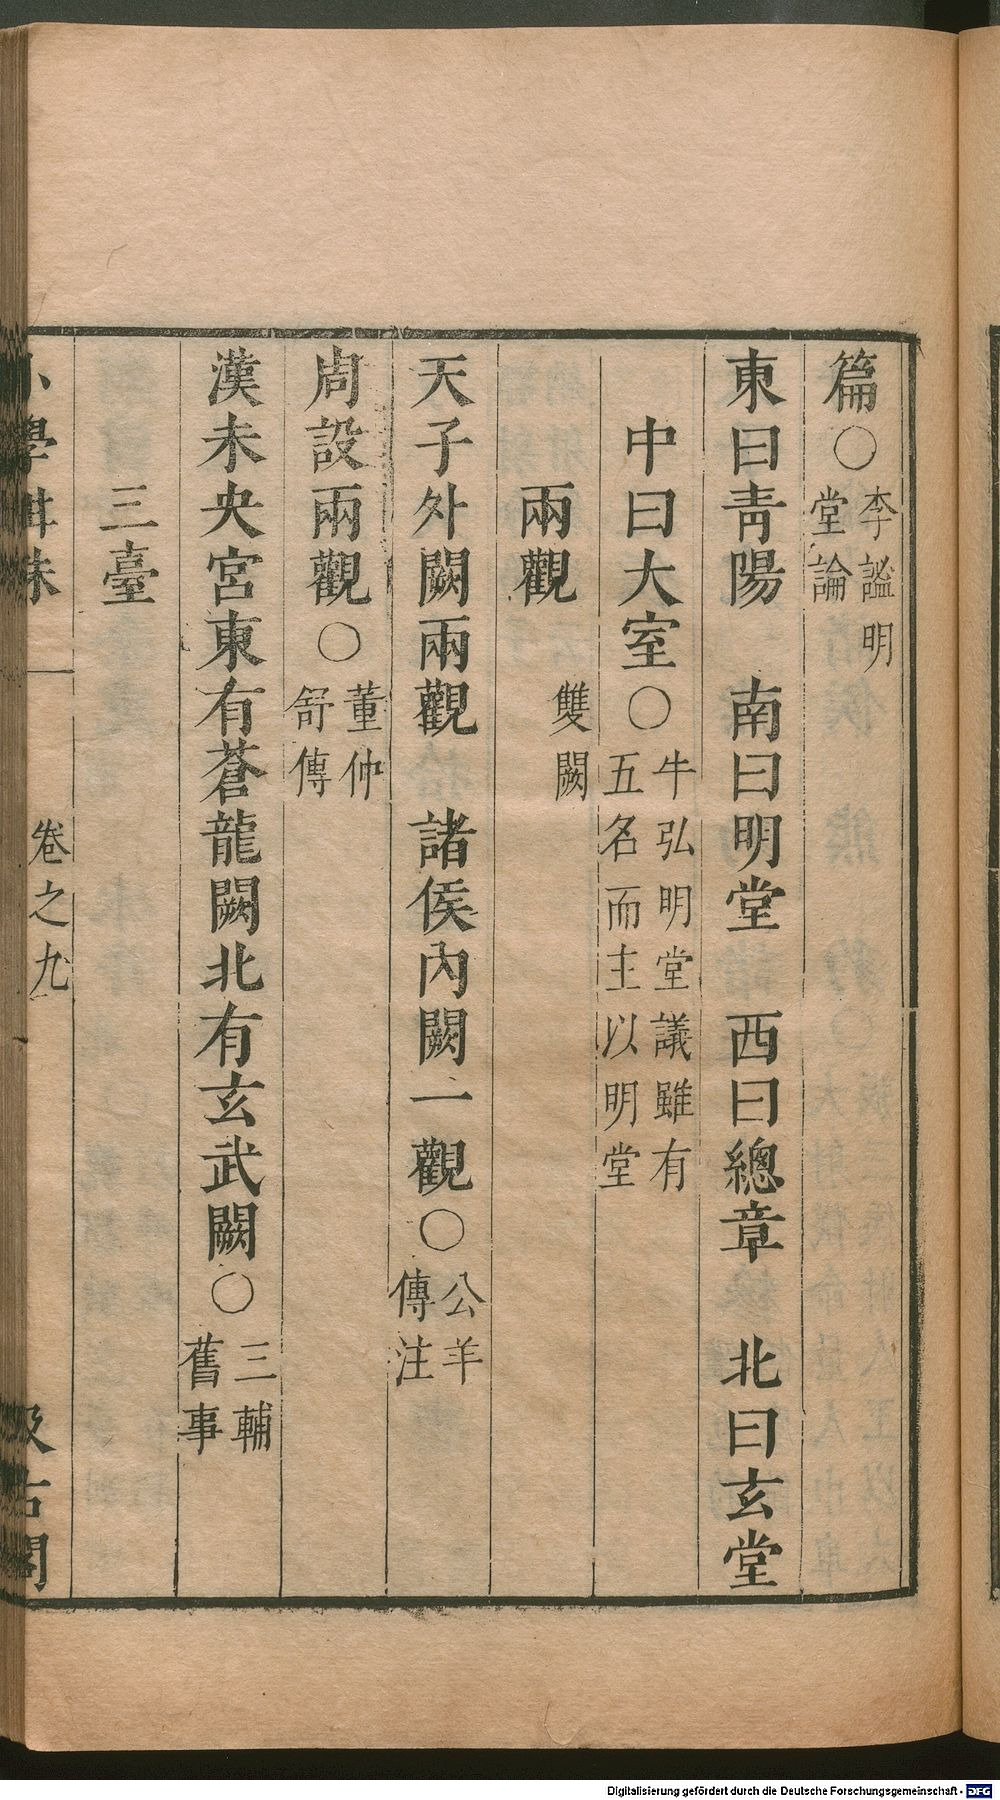 篇○李謐明堂論
東曰青陽　南曰明堂　西曰總章　北曰玄堂
中曰大室○牛弘明堂議雖有五名而主以明堂
兩觀　雙闕
天子外闕兩觀　諸侯內闕一觀○公羊傳注
周設兩觀○董仲舒傳
漢未央宮東有蒼龍闕北有玄武闕○三輔舊事
三臺
小學紺珠　卷之九　汲古閣
Digitalisierung gefördert durch die Deutsche Forschungsgemeinschaft - DFG